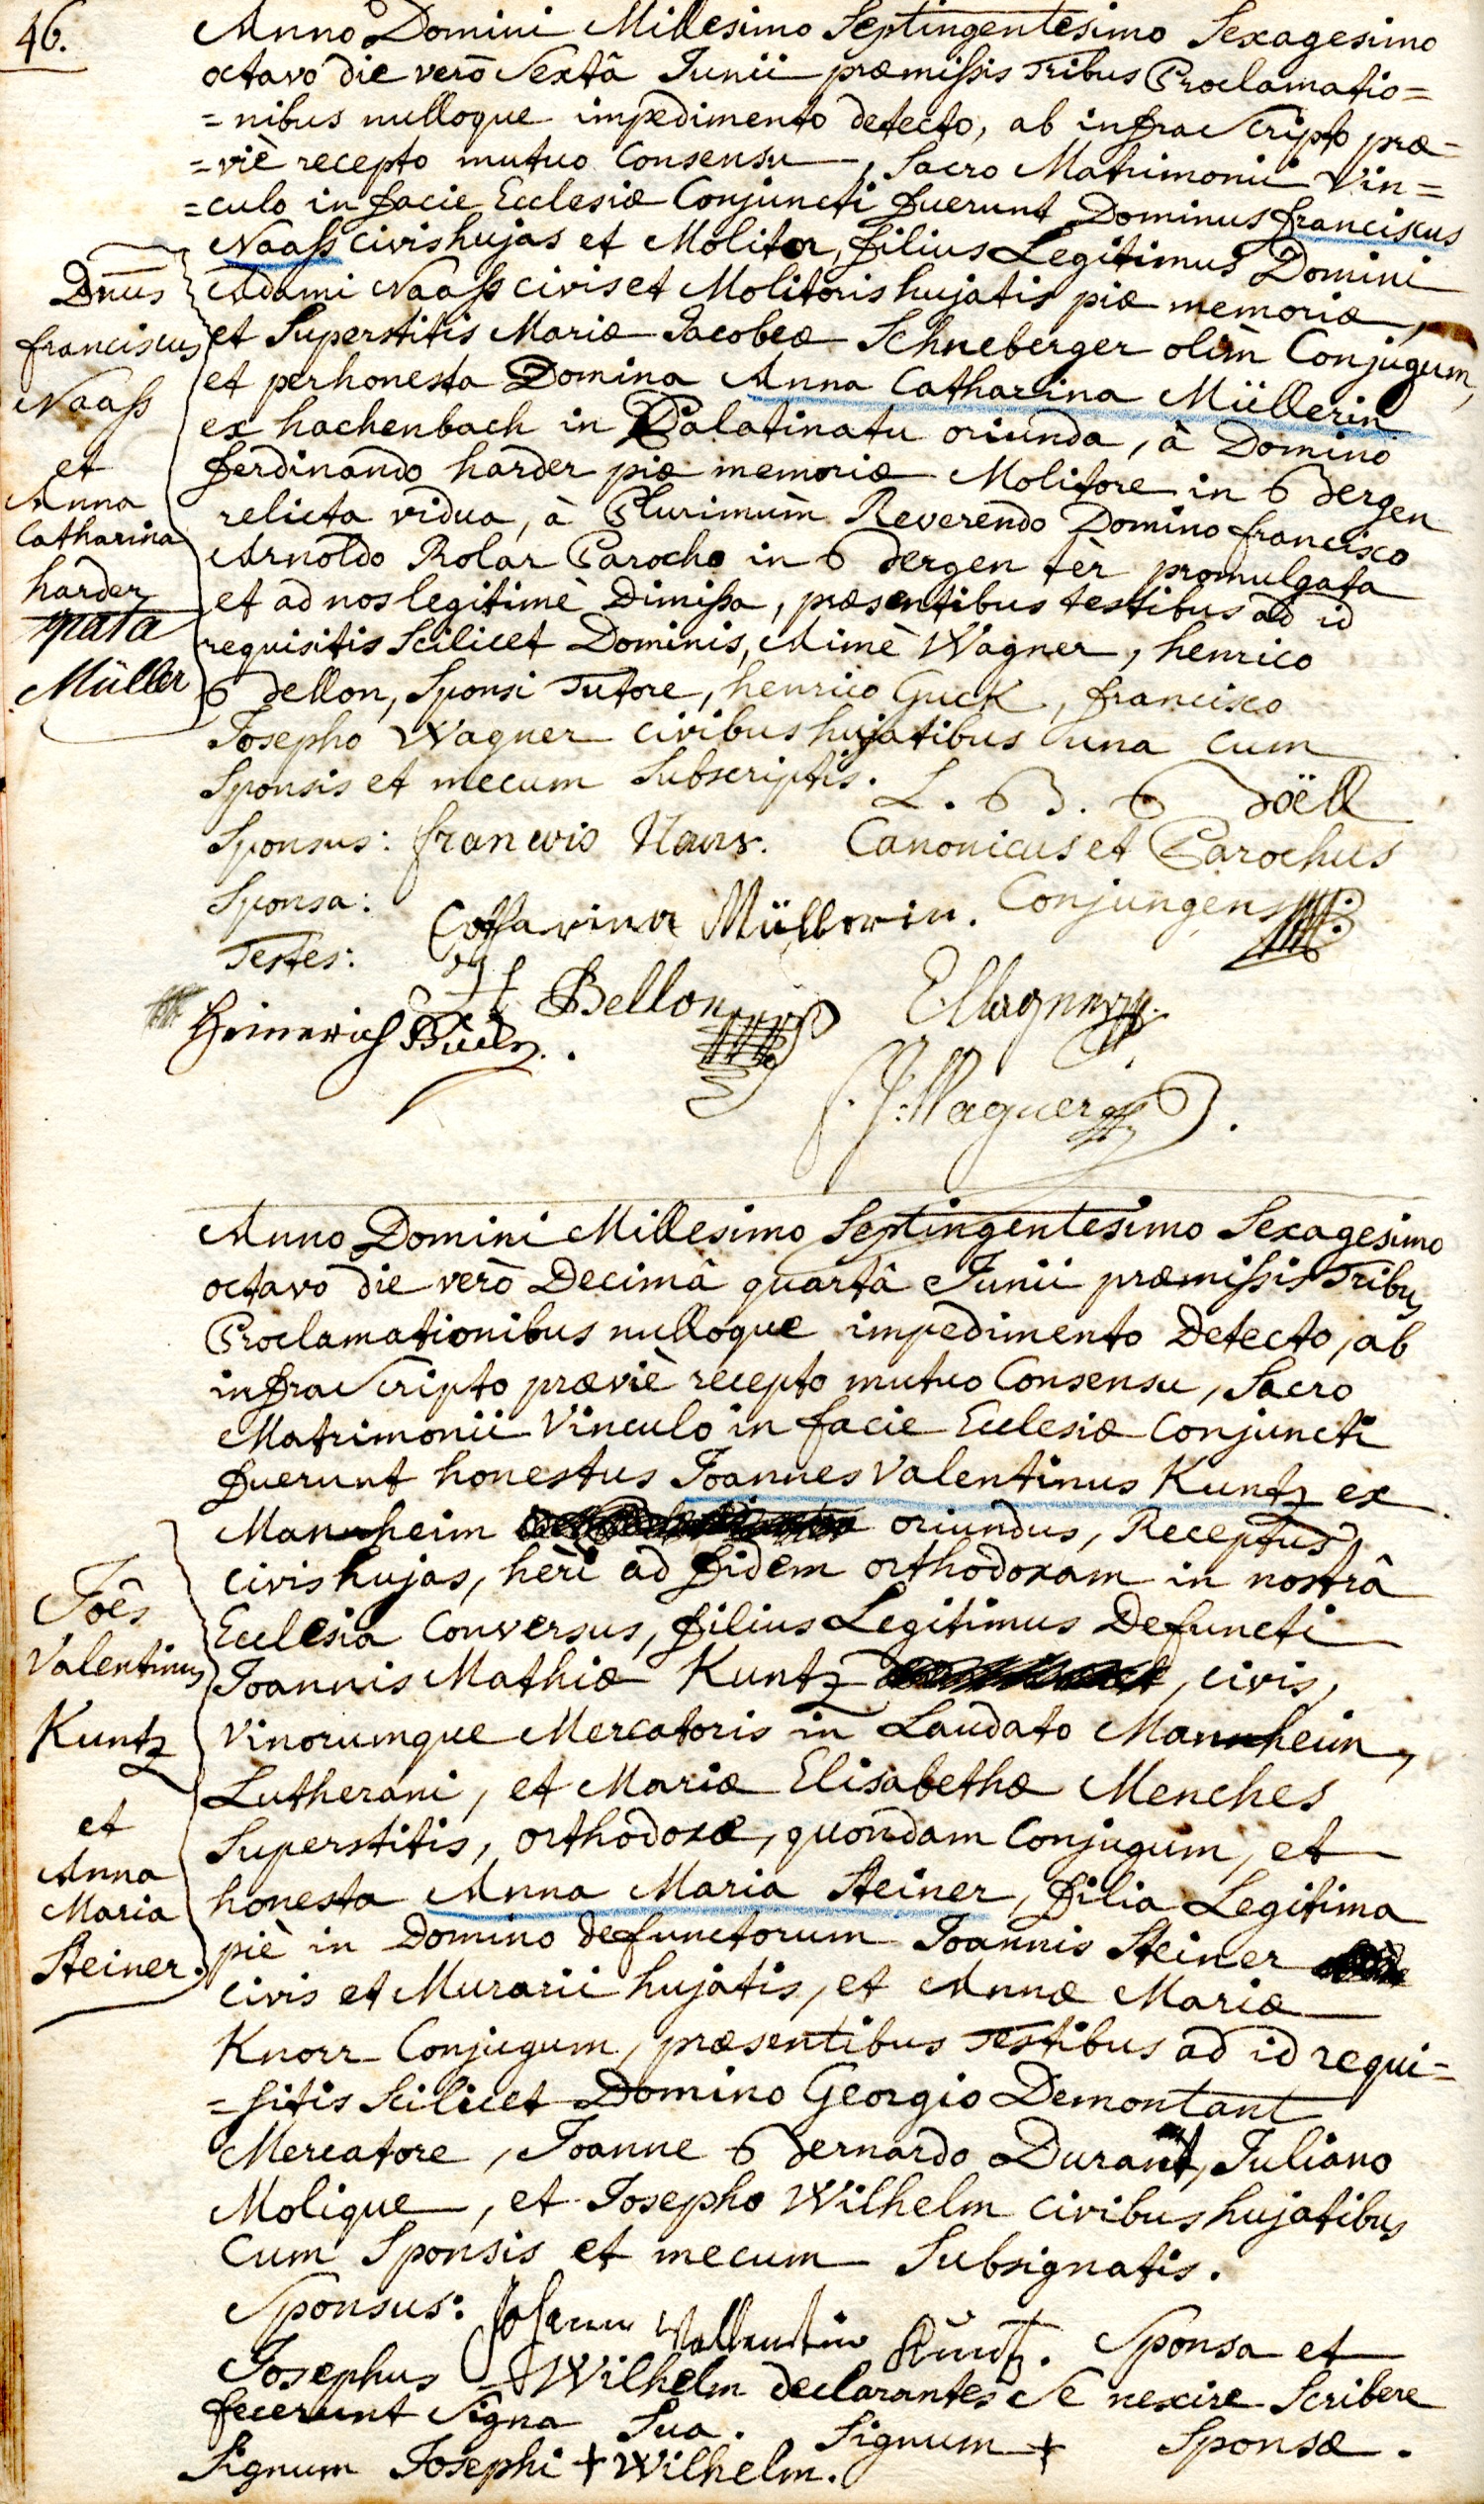 46.
Anno Domini Millesimo Septingentesimo Sexagesimo
octavo die verò Sextâ Junii præmissis Tribus Proclamatio=
=nibus nulloque impedimento detecto, ab infra Scripto præ=
=viè recepto mutuo Consensu, Sacro Matrimonii Vin=
=culo in facie Ecclesiæ Conjuncti fuerunt Dominus franciscus
Naass civis hujas et Molitor, filius Legitimus Domini
Adami Naass civis et Molitoris hujatis piæ memoriæ,
et Superstitis Mariæ Jacobeæ Schneberger olim Conjugum,
et perhonesta Domina Anna Catharina Müllerin
ex hachenbach in Palatinatu oriunda, à Domino
ferdinando harder piæ memoriæ Molitore in Bergen
relicta vidua, à Plurimùm Reverendo Domino francisco
Arnoldo Rolar Parocho in Bergen tèr promulgata
et ad nos legitimè Dimissa, præsentibus testibus ad id
requisitis Scilicet Dominis, Aimè Wagner, henrico
Bellon, Sponsi Tutore, henrico Guck, francisco
Josepho Wagner civibus hujatibus una cum
Sponsis et mecum Subscriptis.
Dnūs
franciscus
Naass
et
Anna
Catharina
harder
nata
Müller
L. B. Boëll
Canonicus et Parochus
Conjungens
Sponsus: francois Naas.
Sponsa: Catharina Müllerin.
Testes:
H Bellon
Heinerich
E Wagner
f. J. Wagner
Anno Domini Millesimo Septingentesimo Sexagesimo
octavo die verò Decimâ quartâ Junii præmissis Tribus
Proclamationibus nulloque impedimento Detecto, ab
infra Scripto præviè recepto mutuo Consensu, Sacro
Matrimonii Vinculo in facie Ecclesiæ Conjuncti
fuerunt honestus Joannes Valentinus Kuntz ex
Mannheim oriundus, Receptus
civis hujas, heri ad fidem orthodoxam in nostrâ
Ecclesia Conversus, filius Legitimus Defuncti
Joannis Mathiæ Kuntz, civis,
vinorumque Mercatoris in Laudato Mannheim,
Lutherani, et Mariæ Elisabethæ Menches
Superstitis, orthodoxæ, quondam Conjugum, et
honesta Anna Maria Steiner, filia Legitima
piè in Domino defunctorum Joannis Steiner
civis et Murarii hujatis, et Annæ Mariæ
Knorr Conjugum, præsentibus Testibus ad id requi=
=sitis Scilicet Domino Georgio Demontant
Mercatore, Joanne Bernardo Durant, Juliano
Molique, et Josepho Wilhelm civibus hujatibus
Cum Sponsis et mecum Subsignatis.
Joēs
Valentinus
Kuntz
et
Anna
Maria
Steiner.
Sponsus: Johann Vallentin Kuntz. Sponsa et
Josephus Wilhelm declarantes Se nescire Scribere
fecerunt Signa Sua. Signum + Sponsæ.
Signum Josephi + Wilhelm.